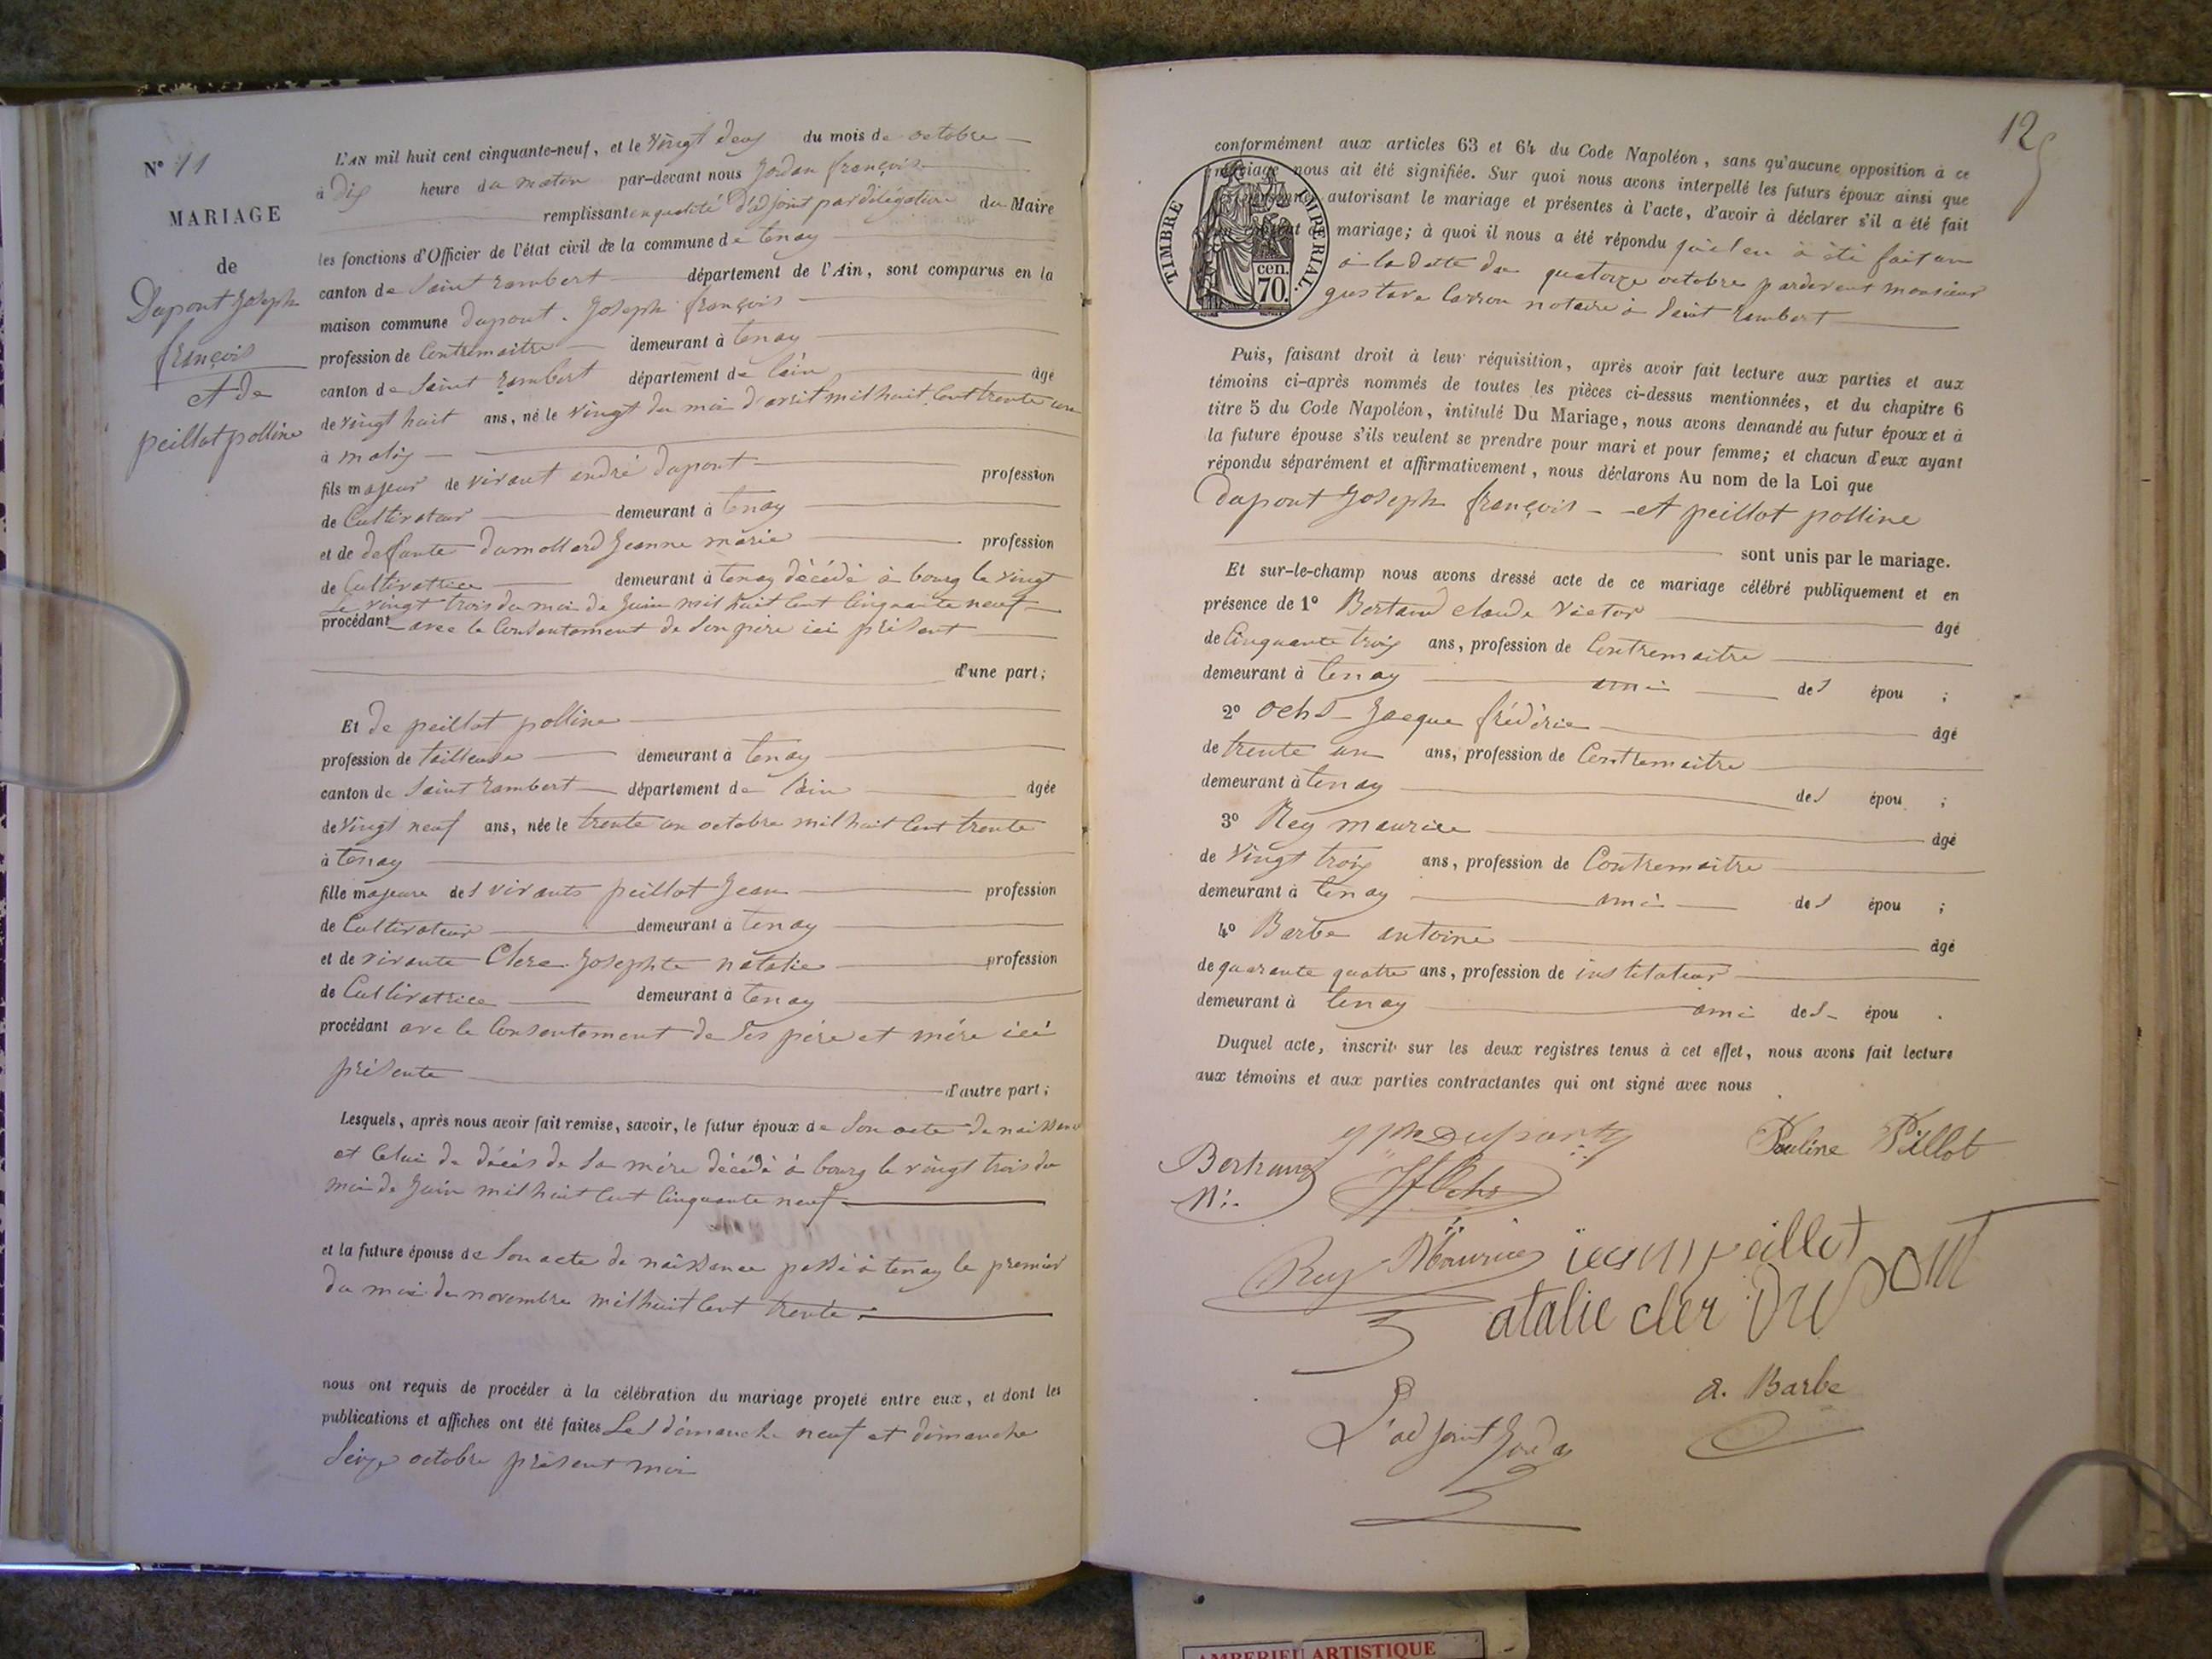 N° 11
MARIAGE
de
Dupont Joseph
françois
et de
peillot polline
L'AN mil huit cent cinquante-neuf, et le vingt deux du mois de octobre
à dix heure du matin par-devant nous Jordan françois
remplissant en qualité d'adjoint par délégation du Maire
les fonctions d'Officier de l'état civil de la commune de tenay
canton de Saint rambert département de l'Ain, sont comparus en la
maison commune dupont Joseph françois
profession de Contremaitre demeurant à tenay
canton de Saint rambert département de l'ain âgé
de vingt huit ans, né le vingt du moi d'avril mil huit Cent trente un
à matix
fils majeur de vivant andré dupont profession
de Cultivateur demeurant à tenay
et de defunte dumollard Jeanne marie profession
de Cultivatrice demeurant à tenay décédé à bourg le vingt
Le vingt trois du moi de Juin mil huit Cent Cinquante neuf
procédant avec le Consentement de Son père ici présent
d'une part;
Et de peillot polline
profession de tailleuse demeurant à tenay
canton de Saint rambert département de l'ain âgée
de vingt neuf ans, née le trente un octobre mil huit Cent trente
à tenay
fille majeure des vivants peillot Jean profession
de Cultivateur demeurant à tenay
et de vivante Clerc Josephte natalie profession
de Cultivatrice demeurant à tenay
procédant avec le Consentement de Ses père et mère ici
présente
d'autre part;
Lesquels, après nous avoir fait remise, savoir, le futur époux de Son acte de naissance
et Celui de décès de Sa mère décédé à bourg le vingt trois du
moi de Juin mil huit Cent Cinquante neuf
et la future épouse de Son acte de naissance passé à tenay le premier
du moi de novembre mil huit Cent trente.
nous ont requis de procéder à la célébration du mariage projeté entre eux, et dont les
publications et affiches ont été faites Les dimanche neuf et dimanche
Seize octobre présent moi
12
conformément aux articles 63 et 64 du Code Napoléon, sans qu'aucune opposition à ce
mariage nous ait été signifiée. Sur quoi nous avons interpellé les futurs époux ainsi que
autorisant le mariage et présentes à l'acte, d'avoir à déclarer s'il a été fait
mariage; à quoi il nous a été répondu qu'il en à été fait un
TIMBRE IMPÉRIAL.
cen.
70.
à la date du quatorze octobre pardevant monsieur
gustave Carron notaire à Saint rambert
Puis, faisant droit à leur réquisition, après avoir fait lecture aux parties et aux
témoins ci-après nommés de toutes les pièces ci-dessus mentionnées, et du chapitre 6
titre 5 du Code Napoléon, intitulé Du Mariage, nous avons demandé au futur époux et à
la future épouse s'ils veulent se prendre pour mari et pour femme; et chacun d'eux ayant
répondu séparément et affirmativement, nous déclarons Au nom de la Loi que
dupont Joseph françois et peillot polline
sont unis par le mariage.
Et sur-le-champ nous avons dressé acte de ce mariage célébré publiquement et en
présence de 1° Bertand claude Victor âgé
de Cinquante trois ans, profession de Contremaitre
demeurant à tenay ami des épou ;
2° ochs Jacque frédéric âgé
de trente un ans, profession de Contremaitre
demeurant à tenay des épou ;
3° Rey maurice âgé
de vingt trois ans, profession de Contremaitre
demeurant à tenay ami des épou ;
4° Barbe antoine âgé
de quarante quatre ans, profession de instituteur
demeurant à tenay ami des épou .
Duquel acte, inscrit sur les deux registres tenus à cet effet, nous avons fait lecture
aux témoins et aux parties contractantes qui ont signé avec nous
jph Dupont Pauline Pillot
Bertrand
Ochs
Rey Maurice jean peillot
atalie cler Dupont
a. Barbe
L'adjoint Jordan
AMBERIEU ARTISTIQUE